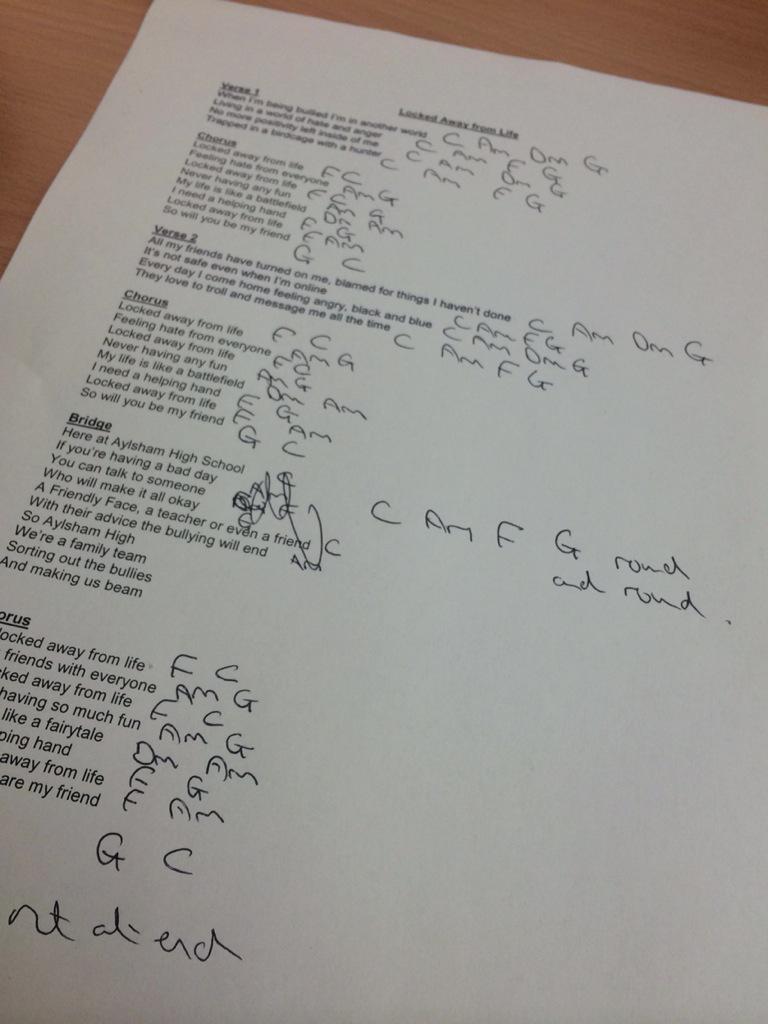 Locked Away from Life
Verse 1
When I'm being bullied I'm in another world C Am Dm G
Living in a world of hate and anger C Am F G
No more positivity left inside of me C Am Dm G
Trapped in a birdcage with a hunter C Am F G
Chorus
Locked away from life F C
Feeling hate from everyone Am G
Locked away from life F C
Never having any fun Am G
My life is like a battlefield Dm Am
I need a helping hand F G
Locked away from life F Am
So will you be my friend G C
Verse 2
All my friends have turned on me, blamed for things I haven't done C Am Dm G
It's not safe even when I'm online C Am F G
Every day I come home feeling angry, black and blue C Am Dm G
They love to troll and message me all the time C Am F G
Chorus
Locked away from life F C
Feeling hate from everyone Am G
Locked away from life F C
Never having any fun Am G
My life is like a battlefield Dm Am
I need a helping hand F G
Locked away from life F Am
So will you be my friend G C
Bridge
Here at Aylsham High School
If you're having a bad day
You can talk to someone
Who will make it all okay
A Friendly Face, a teacher or even a friend
With their advice the bullying will end C
So Aylsham High Am
We're a family team
Sorting out the bullies
And making us beam
C Am F G round
and round.
orus
ocked away from life F C
friends with everyone Am G
cked away from life F C
having so much fun Am G
like a fairytale Dm Am
ping hand F G
away from life F Am
are my friend
G C
at end